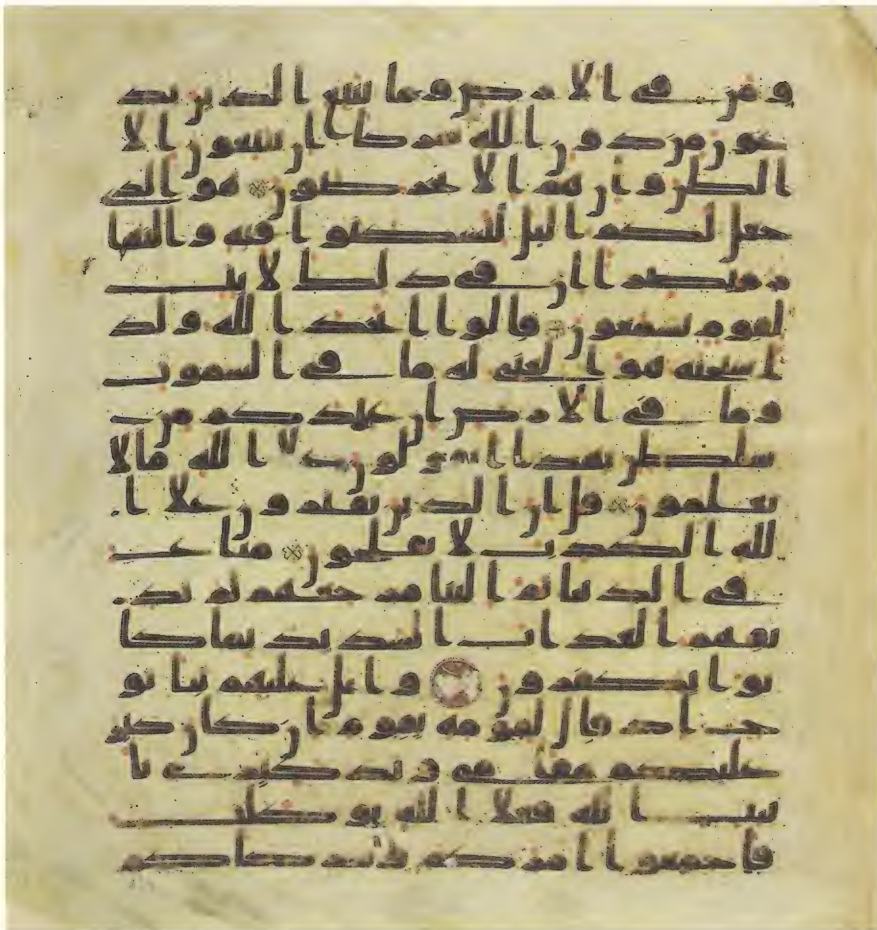 ومن في الارض وما يتبع الذين يد
عون من دون الله شركا ان يتبعون الا
الظن وان هم الا يخرصون هو الذي
جعل لكم اليل لتسكنوا فيه والنها
ر مبصرا ان في ذلك لايت
لقوم يسمعون قالوا اتخذ الله ولد
ا سبحنه هو الغني له ما في السموت
وما في الارض ان عندكم من
سلطن بهذا اتقولون علا الله مالا
تعلمون قل ان الذين يفترون علا ا
لله الكذب لا يفلحون متاع
في الدنيا ثم الينا مرجعهم ثم نذ
يقهم العذاب الشديد بما كا
نوا يكفرون واتل عليهم نبا نو
ح اذ قال لقومه يقوم ان كان كبر
عليكم مقامي وتذكيري با
يت الله فعلا الله توكلت
فاجمعوا امركم وشركاكم